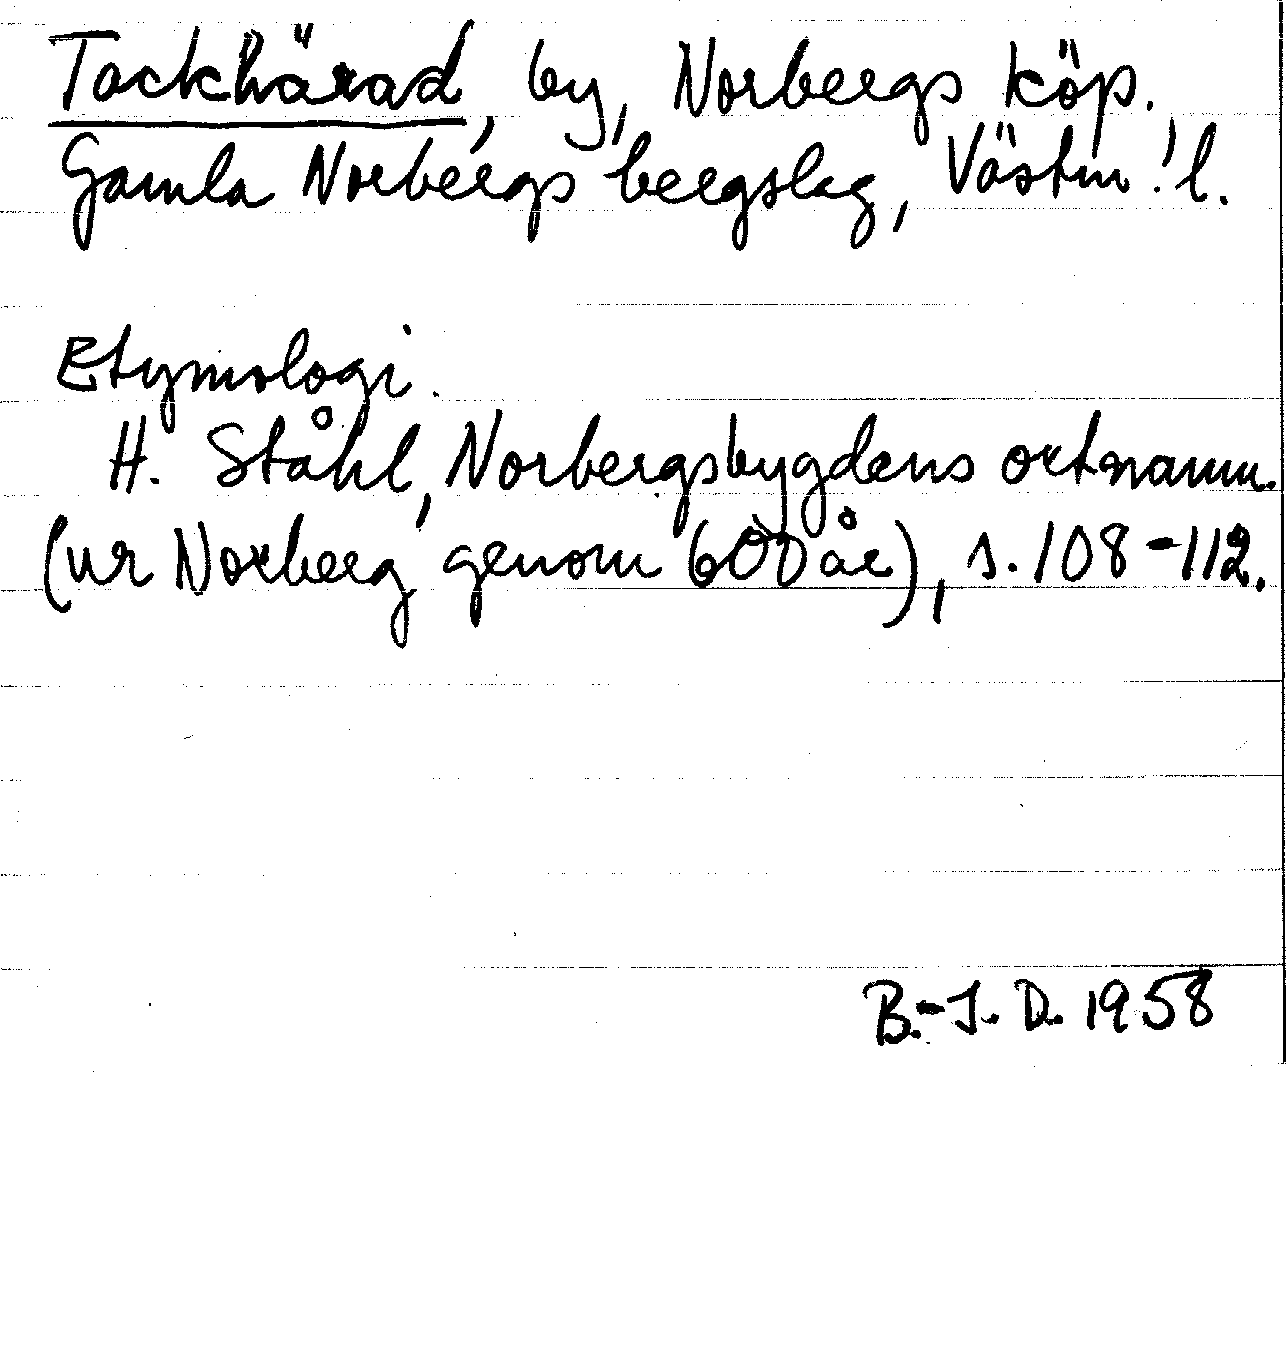 Tackhärad, by, Norbergs köp.
Gamla Norbergs bergslag, Västm:l.
Etymologi.
H. Ståhl, Norbergsbygdens ortnamn.
(ur Norberg genom 600 år), s. 108-112.
B.-I. D. 1958